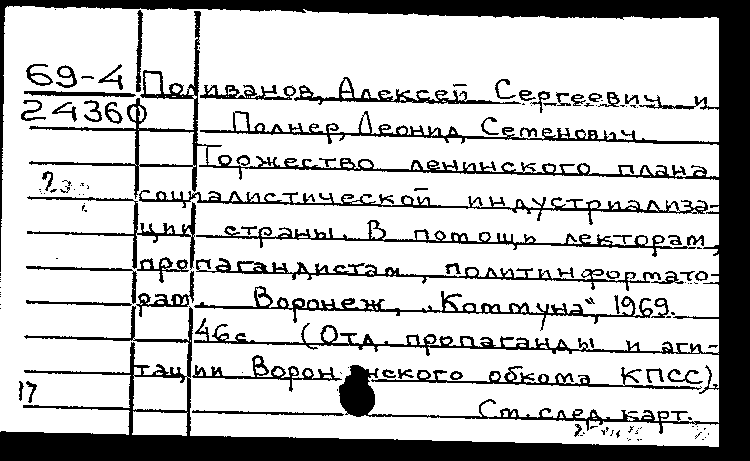 69-4 Поливанов, Алексей Сергеевич и
24360 Полнер, Леонид Семенович.
Торжество ленинского плана
2э
социалистической индустриализа-
ции страны. В помощь лекторам,
пропагандистам, политинформато-
рам. Воронеж, „Коммуна“, 1969.
46 с. (Отд. пропаганды и аги-
тации Ворон нского обкома КПСС).
17
Ст. след. карт.